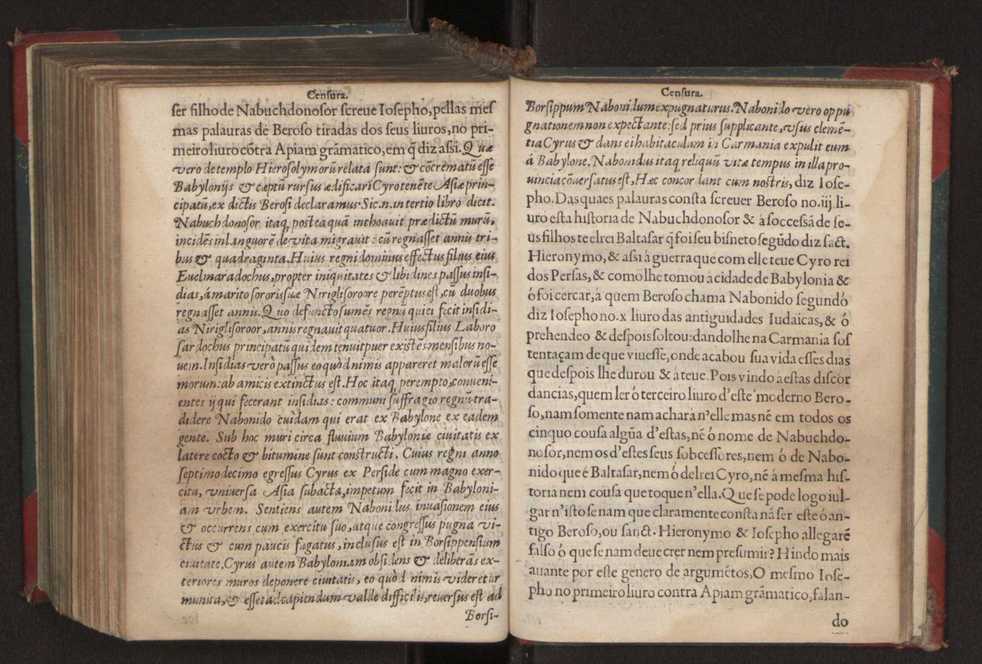 Censura.
ser filho de Nabuchdonosor screue Iosepho, pellas mes
mas palauras de Beroso tiradas dos seus liuros, no pri-
meiro liuro cõtra Apiam grãmatico, em q̃ diz assi. Quæ
vero de templo Hierosolymorũ relata sunt: & cõcrematũ esse
Babylonijs & cæptũ rursus ædificari Cyro tenẽte Asiæ prin-
cipatũ, ex dictis Berosi declaramus. Sic.n.in tertio libro dicit.
Nabuchdonosor itaq; posteaquã inchoauit prædictũ murũ,
incidẽs in languorẽ de vita migrauit: cũ regnasset annis tri-
bus & quadraginta. Huius regni dominus effectus filius eius
Euelmaradochus, propter iniquitates & libidines passus insi-
dias, á marito sororis suæ Niriglisoroore perẽptus est, cũ duobus
regnasset annis. Quo defuncto sumẽs regnũ qui ei fecit insidi-
as Niriglisoroor, annis regnauit quatuor. Huius filius Laboro
sardochus principatũ quidem tenuit puer existẽs mensibus no-
uem. Insidias vero passus eo quòd nimis appareret malorũ esse
morum: ab amicis extinctus est. Hoc itaq; perempto, conueni-
entes ij qui fecerant insidias: communi suffragio regnũ tra-
didere Nabonido cuidam qui erat ex Babylone ex eadem
gente. Sub hoc muri circa fluuium Babyloniæ ciuitatis ex
latere cocto & bitumine sunt constructi. Cuius regni anno
septimodecimo egressus Cyrus ex Perside cum magno exer-
citu, vniuersa Asia subacta, impetum fecit in Babyloni-
am vrbem. Sentiens autem Nabonidus inuasionem eius
& occurrens cum exercitu suo, atque congressus pugna vi-
ctus & cum paucis fugatus, inclusus est in Borsippensium
ciuitate. Cyrus autem Babyloniam obsidens & deliberãs ex-
teriores muros deponere ciuitatis, eo quòd nimis videretur
munita, & esset ad capiendum valde difficilis, reuersus est ad
Borsi-
Censura.
Borsippum Nabonidum expugnaturus. Nabonido vero oppu
gnationem non expectante: sed prius supplicante, vsus clemẽ-
tia Cyrus & dans ei habitaculum in Carmania expulit eum
á Babylone. Nabonidus itaq; reliquũ vitæ tempus in illa pro-
uincia cõuersatus est, Hæc concordant cum nostris, diz Iose-
pho. Das quaes palauras consta screuer Beroso no .iij. li-
uro esta historia de Nabuchdonosor & à soccessã de se-
us filhos te elrei Baltasar q̃ foi seu bisneto segũdo diz sact.
Hieronymo, & assi à guerra que com elle teue Cyro rei
dos Persas, & como lhe tomou a cidade de Babylonia &
ó foi cercar, á quem Beroso chama Nabonido segundo
diz Iosepho no .x liuro das antiguidades Iudaicas, & ó
prehendeo & despois soltou: dandolhe na Carmania sos
tentaçam de que viuesse, onde acabou sua vida esses dias
que despois lhe durou & á teue. Pois vindo a estas discor
dancias, quem ler ó terceiro liuro d'este moderno Bero-
so, nam somente nam achara n'elle mas nẽ em todos os
cinquo cousa algũa d'estas, nẽ ó nome de Nabuchdo-
nosor, nem os d'estes seus sobcessores, nem ó de Nabo-
nido que é Baltasar, nem ó delrei Cyro, nẽ á mesma his-
toria nem cousa que toque n'ella. Que se pode logo iul-
gar n'isto se nam que claramente consta nã ser este ó an-
tigo Beroso, ou sanct. Hieronymo & Iosepho allegarẽ
falso ó que se nam deue crer nem presumir? Hindo mais
auante por este genero de argumẽtos, O mesmo Iose-
pho no primeiro liuro contra Apiam grãmatico, falan-
do